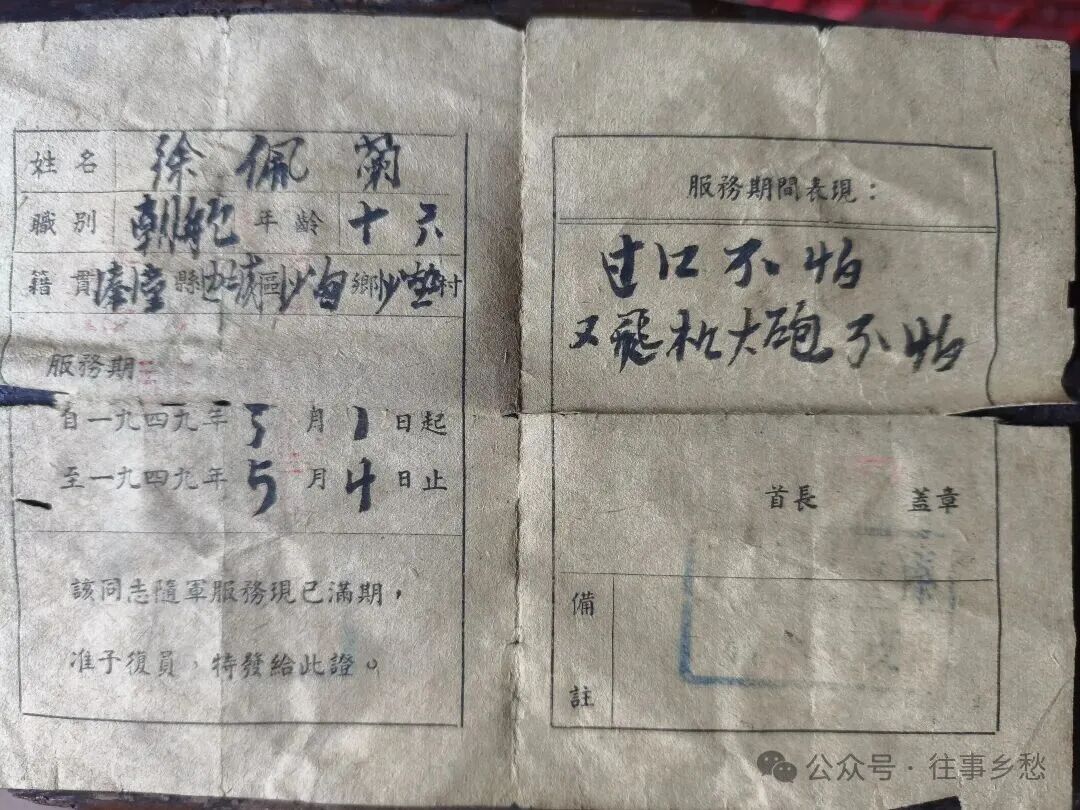 姓名 徐佩
職別 年齡 十六
籍貫 溱潼縣边城區沙甸鄉沙垫村
服務期
自一九四九年 月1日起
至一九四九年5月4日止
該同志隨軍服務現已滿期，
准予復員，特發給此證。
服務期間表現：
过江不怕
又飛机大砲不怕
首長 蓋章
備註
公众号·往事乡愁